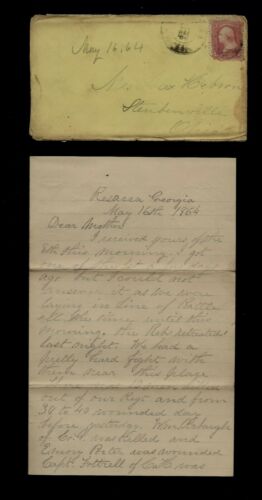 May 16, 64
Steubenville
Ohio
Resacca Georgia
May 16th 1864
Dear Mother
I received yours of the
8th this morning. I got
one of
ago but I could not
answer it as we were
laying in line of battle
all the time until this
morning. the Rebs retreated
last night. We had a
pretty hard fight with
them near this place
out of our Regt and from
39 to 40 wounded day
before yesterday. Wm
of Co. was killed and
Emory Porter was wounded
Capt. of Co H was